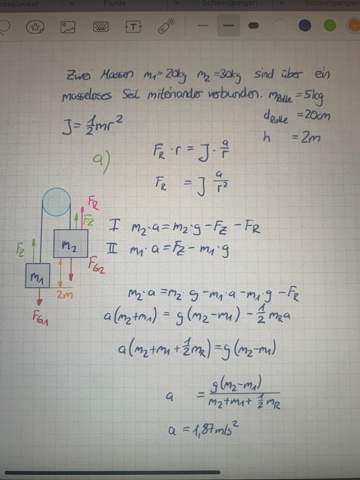 Zwei Massen m₁=20kg m₂=30kg sind über ein
masseloses Seil miteinander verbunden. m_Rolle=5kg
d_Rolle=20cm
h = 2m
J=½mr²
a)
F_R · r = J · a/r
F_R = J a/r²
F_R
F_Z
F_Z
m₂
m₁
F_G2
2m
F_G1
I m₂·a=m₂·g-F_Z-F_R
II m₁·a=F_Z-m₁·g
m₂·a=m₂·g-m₁·a-m₁·g-F_R
a(m₂+m₁) = g(m₂-m₁) - ½m_R a
a(m₂+m₁+½m_R)=g(m₂-m₁)
a = g(m₂-m₁)/(m₂+m₁+½m_R)
a = 1,87m/s²